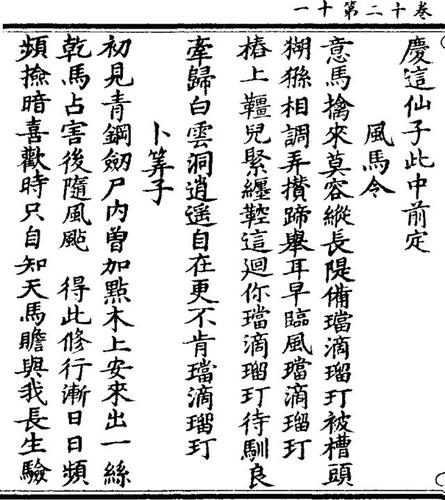 卷十二第十一
慶這仙子此中前定
風馬令
意馬擒來莫容縱長隄備璫滴瑠玎被槽頭
糊猻相調弄攢蹄舉耳早臨風璫滴瑠玎
樁上韁兒緊纏鞚這迴你璫滴瑠玎待馴良
牽歸白雲洞逍遥自在更不肯璫滴瑠玎
卜筭子
初見青鋼劒尸內曽加點木上安來出一絲
乾馬占害後隨風颭　得此修行漸日日頻
頻撿暗喜歡時只自知天馬瞻與我長生驗